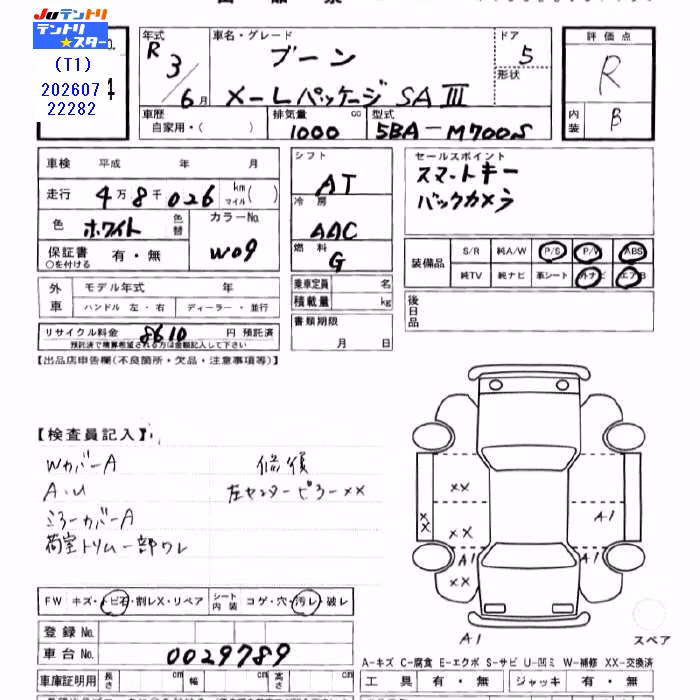 Juテントリ
テントリ
★スター
(T1)
202607
22282
年式 R3/6月
車名・グレード ブーン
X-LパッケージSAⅢ
ドア 5
形状
評価点 R
内装 B
車歴 自家用・( )
排気量 1000 cc
型式 5BA-M700S
車検 平成 年 月
走行 4万8千026 km マイル( )
色 ホワイト 色替
カラーNo. W09
保証書 有・無
○を付ける
シフト AT
冷房 AAC
燃料 G
乗車定員 名
積載量 kg
書類期限 月 日
セールスポイント
スマートキー
バックカメラ
装備品 S/R 純A/W P/S P/W ABS
純TV 純ナビ 革シート 外ナビ エアB
後日品
外車 モデル年式 年
ハンドル 左・右 ディーラー・並行
リサイクル料金 8610 円 預託済
預託済で精算希望される方は金額記入して下さい
【出品店申告欄(不良箇所・欠品・注意事項等)】
【検査員記入】
WカバーA 修復
A.U 左センターピラーXX
ミラーカバーA
荷室トリム一部ワレ
XX
XX
XX
XX
A1
A1
A1
A1
スペア
FW キズ・トビ石・割レX・リペア シート内装 コゲ・穴・汚レ・破レ
登録No.
車台No. 0029789
A-キズ C-腐食 E-エクボ S-サビ U-凹ミ W-補修 XX-交換済
車庫証明用 長さ cm 幅 cm 高さ cm
工具 有・無 ジャッキ 有・無